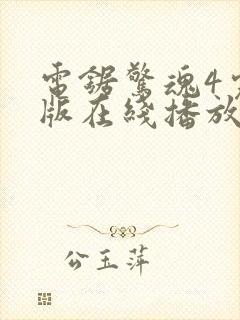 電鋸驚魂4完
版在綫播放
公玉萍